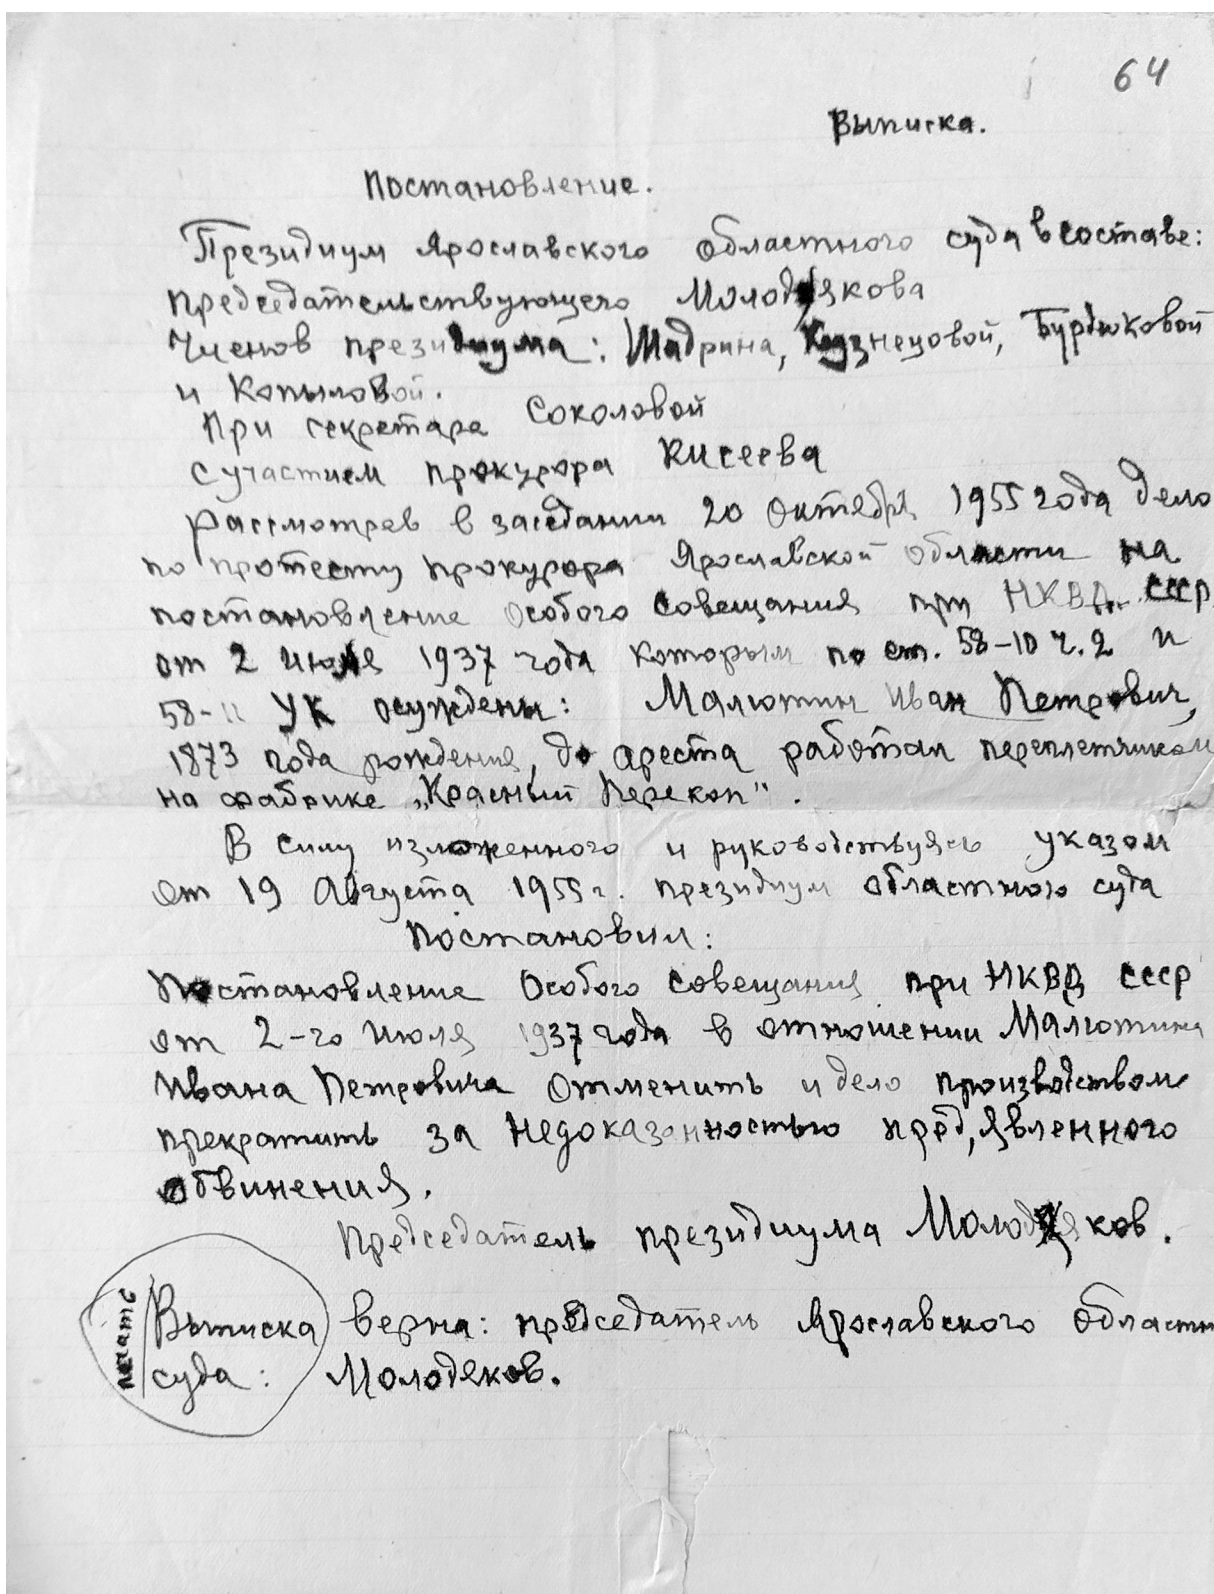 64
Выписка.
Постановление.
Президиум Ярославского областного суда в составе:
председательствующего Молодякова
Членов президиума: Шадрина, Кузнецовой, Бурдюковой
и Копыловой.
При секретаре Соколовой
с участием прокурора Кисеева
Рассмотрев в заседании 20 октября 1955 года дело
по протесту прокурора Ярославской области на
постановление Особого Совещания при НКВД СССР
от 2 июля 1937 года которым по ст. 58-10 ч.2 и
58-11 УК осуждены: Малютин Иван Петрович,
1873 года рождения, до ареста работал переплетчиком
на фабрике „Красный Перекоп".
В силу изложенного и руководствуясь указом
от 19 Августа 1955 г. президиум областного суда
Постановил:
Постановление Особого Совещания при НКВД СССР
от 2-го Июля 1937 года в отношении Малютина
Ивана Петровича отменить и дело производством
прекратить за недоказанностью пред,явленного
обвинения.
Председатель президиума Молодяков.
печать
Выписка верна: председатель Ярославского областн
суда: Молодяков.